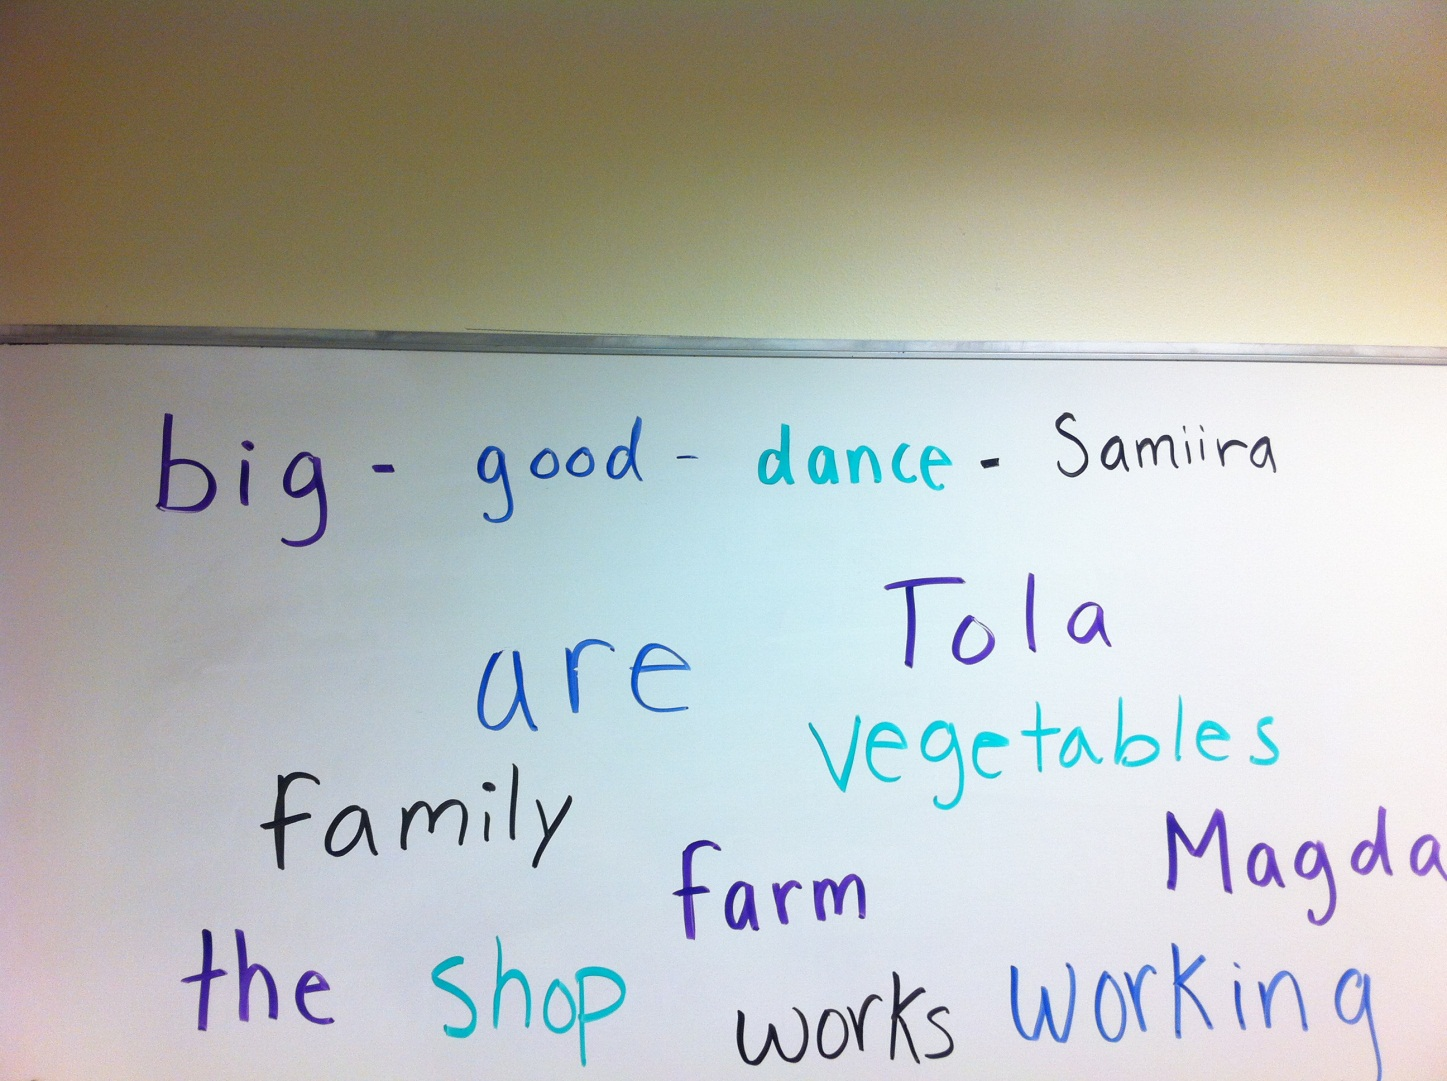 big - good - dance - Samiira
Tola
are
vegetables
family
Magda
farm
the shop works working